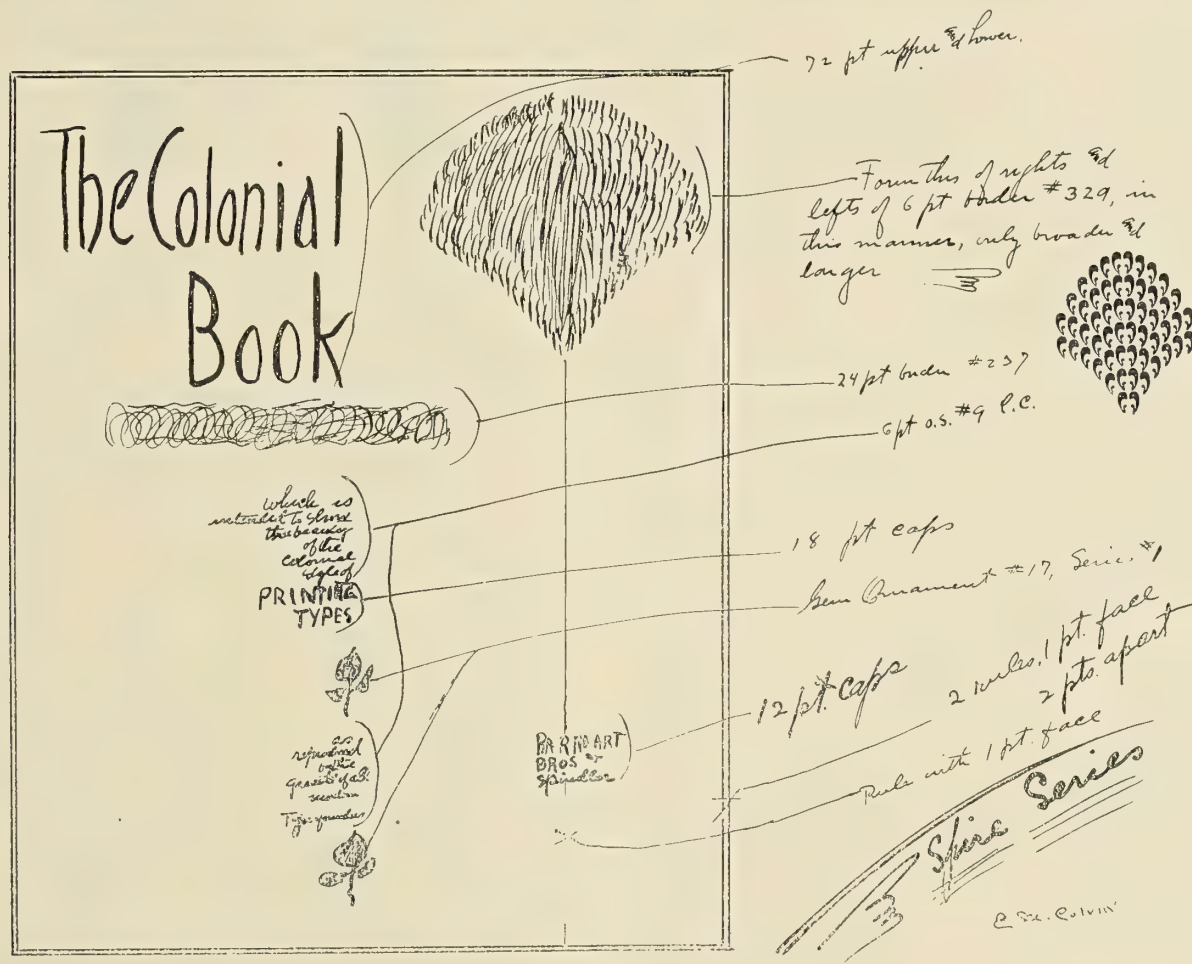 The Colonial
Book
which is
intended to show
the beauty
of the
Colonial
style of
PRINTING
TYPES
as
reproduced
by the
Type founders
BARNHART
BROS &
Spindler
72 pt upper &d lower.
Form this of rights &d
lefts of 6 pt border #329, in
this manner, only broader &d
longer
24 pt border #237
6 pt O.S. #9 l.c.
18 pt caps
Gem Ornament #17, Series #1
12 pt. caps
2 rules, 1 pt. face
2 pts. apart
Rule with 1 pt. face
Spire Series